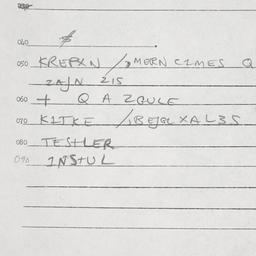 040
050 KREPXN /, MERN CIMES Q
ZAJN 215
060 + Q A ZGULE
070 KITKE /, BEJGL XAL35
080 TESTLER
090 INSTUL